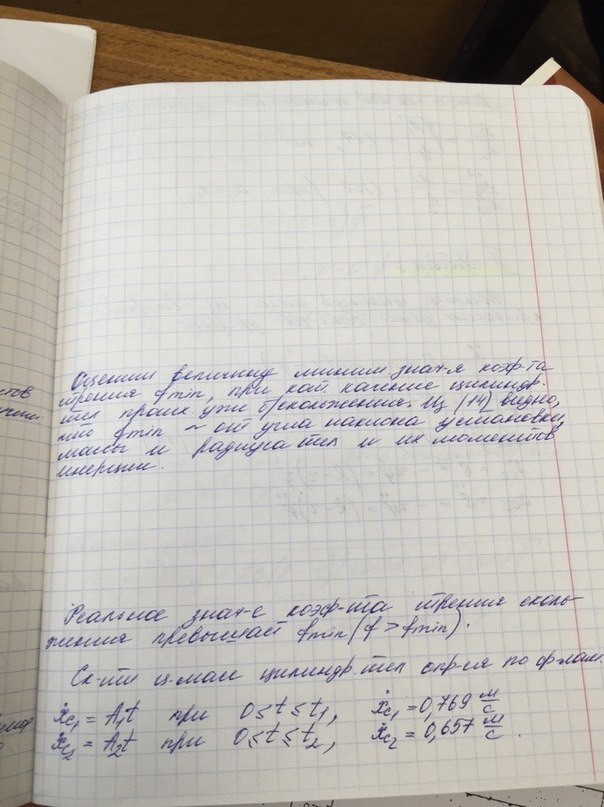 Оценим величину миним знат-я коэф-та
трения fmin, при кот качение цилиндр.
тел происх уже б/скольжения. Из (14) видно,
что fmin ~ от угла наклона установки,
массы и радиуса тел и их моментов
инерции.
Реальное знач-е коэф-та трения сколь-
жения превышает fmin (f > fmin).
Ск-ти ц.масс цилиндр тел опр-ся по ф-лам:
ẋc₁ = A₁t при 0 ≤ t ≤ t₁, ẋc₁ = 0,769 м/с
ẋc₂ = A₂t при 0 ≤ t ≤ t₂, ẋc₂ = 0,657 м/с.